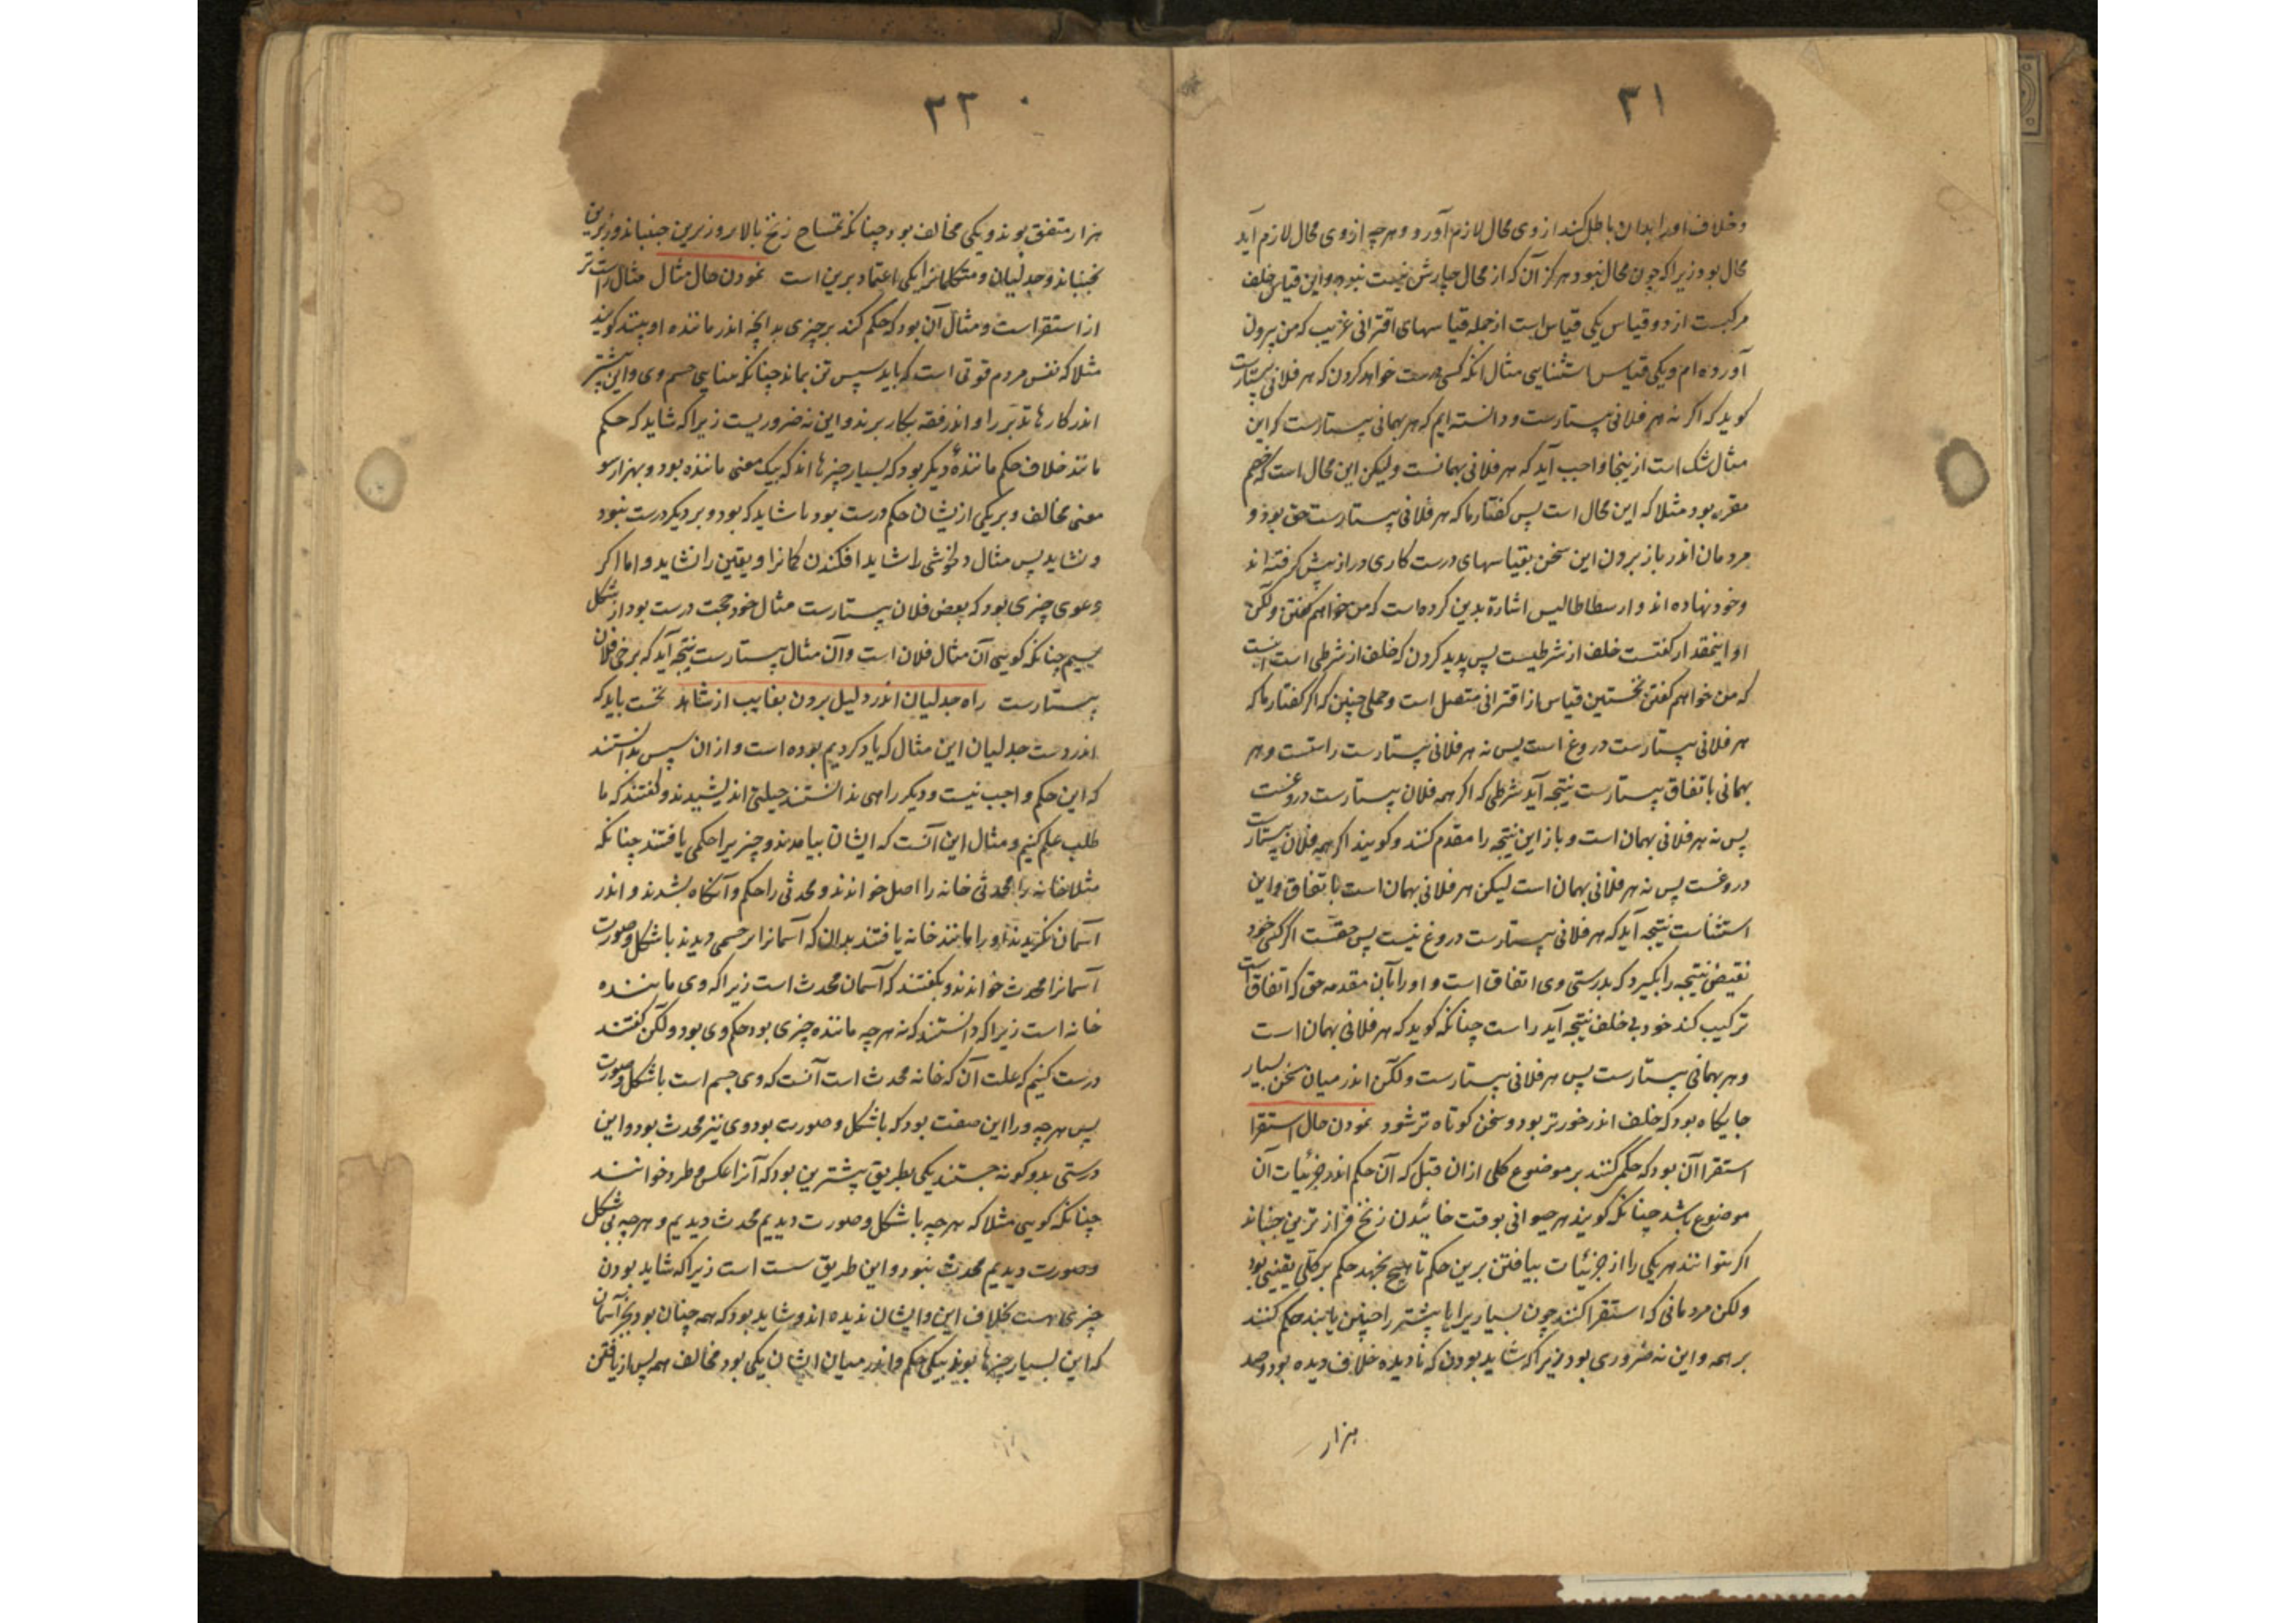 ۳۱
و خلاف او را بدان باطل کند از وی محال لازم آورد و هرچه از وی محال لازم آید
محال بود زیرا که چون محال نبود هرگز آن که از محال چارش نیست نبود و این قیاس خلف
مرکبست از دو قیاس یکی قیاس است از جمله قیاسهای اقترانی غریب که من بیرون
آورده ام و یکی قیاس استثنایی مثال انکه کسی درست خواهد کردن که هر فلانی بیستارست
کوید که اکر نه هر فلانی بیستارست و دانسته ایم که هر بهمانی بیستارست کر این
مثال شک است ازینجا واجب آید که نه هر فلانی بهمانست ولیکن این محال است که خصم
مقرر بود مثلا که این محال است پس کفتار ما که هر فلانی بیستارست حق بود و
مردمان اندر باز برون این سخن بقیاسهای درست کاری دراز پیش کرفته اند
و خود نهاده اند و ارسطاطالیس اشارة بدین کرده است که من خواهم کفتن ولکن
او اینمقدار کفتست خلف از شرطیست پس پدید کردن که خلف از شرطی است انست
که من خواهم کفتن نخستین قیاس از اقترانی متصل است و حملی چنین که اکر کفتار ما که
هر فلانی بیستارست دروغ است پس نه هر فلانی بیستارست راستست و هر
بهمانی باتفاق بیستارست نتیجه آید شرطی که اکر همه فلان بیستارست دروغست
پس نه هر فلانی بهمان است و باز این نتیجه را مقدم کنند و کویند اکر همه فلان بیستارست
دروغست پس نه هر فلانی بهمان است لیکن هر فلانی بهمان است باتفاق و این
استثناست نتیجه آید که هر فلانی بیستارست دروغ نیست پس حقست اکر کسی خود
نقیض نتیجه را بکیرد که بدرستی وی اتفاق است و او را بآن مقدمه حق که اتفاق است
ترکیب کند خود بی خلف نتیجه آید راست چنانکه کوید که هر فلانی بهمان است
و هر بهمانی بیستارست پس هر فلانی بیستارست ولکن اندر میان سخن بسیار
جایکاه بود که خلف اندر خورتر بود و سخن کوتاه تر شود نمودن حال استقرا
استقرا آن بود که حکم کنند بر موضوع کلی ازان قبل که آن حکم اندر جزئیات آن
موضوع باشد چنانکه کویند هر حیوانی بوقت خائیدن زنخ فرازترین جنباند
اکر بتوانند هر یکی را از جزئیات بیافتن برین حکم تا هیچ نجهد حکم بر کلی یقینی بود
ولکن مردمانی که استقرا کنند چون بسیاریرا یا بیشتر را چنین یابند حکم کنند
بر همه و این نه ضروری بود زیرا که شاید بودن که نادیده خلاف دیده بود و صد
هزار
۳۲
هزار متفق بوند و یکی مخالف بود چنانکه تمساح زنخ بالا بر وزیرین جنباند و زیرین
نجنباند و جدلیان و متکلمانرا یکی اعتماد برین است نمودن حال مثال مثال راست تر
از استقراست و مثال آن بود که حکم کند بر چیزی بدانچه اندر مانندهٔ او بینند کویند
مثلا که نفس مردم قوتی است که باید سپس تن بماند چنانکه بینایی جسم وی و این بیشتر
اندر کارها تدبر را و اندر فقه بکار برند و این نه ضروریست زیرا که شاید که حکم
مانند خلاف حکم مانندهٔ دیکر بود که بسیار چیزها اند که بیک معنی ماننده بود و بهزار سو
معنی مخالف و بر یکی ازیشان حکم درست بود یا شاید که بود و بر دیکر درست نبود
و نشاید پس مثال دلخوشی را شاید افکندن کمانرا و یقین را نشاید و اما اکر
دعوی چیزی بود که بعض فلان بیستارست مثال خود حجت درست بود از شکل
سیم چنانکه کویی آن مثال فلان است و آن مثال بیستارست نتیجه آید که برخی فلان
بیستارست راه جدلیان اندر دلیل برون بغایب از شاهد نخست باید که
اندر دست جدلیان این مثال که یاد کردیم بوده است و ازان سپس بدانستند
که این حکم واجب نیست و دیکر راهی ندانستند حیلتی اندیشیدند و کفتند که ما
طلب علم کنیم و مثال این آنست که ایشان بیامدند و چیزیرا حکمی یافتند چنانکه
مثلا خانه را محدثی خانه را اصل خواندند و محدثی را حکم و آنکاه بشدند و اندر
آسمان نکریدند او را مانند خانه یافتند بدان که آسمانرا بر جسمی دیدند با شکل و صورت
آسمانرا محدث خواندند و بکفتند که آسمان محدث است زیرا که وی مانینده
خانه است زیرا که دانستند که نه هرچه ماننده چیزی بود حکم وی بود ولکن کفتند
درست کنیم که علت آن که خانه محدث است آنست که وی جسم است با شکل و صورت
پس هرچه ورا این صفت بود که با شکل و صورت بود وی نیز محدث بود و این
درستی بدو کونه جستند یکی بطریق پیشترین بود که آنرا عکس و طرد خوانند
چنانکه کویی مثلا که هرچه با شکل و صورت دیدیم محدث دیدیم و هرچه بی شکل
و صورت دیدیم محدث نبود و این طریق سست است زیرا که شاید بودن
چیزی هست بخلاف این و ایشان ندیده اند و شاید بود که همه چنان بود بجز آسمان
که این بسیار چیزها بوند بیکی حکم و اندر میان ایشان یکی بود مخالف همه پس از یافتن